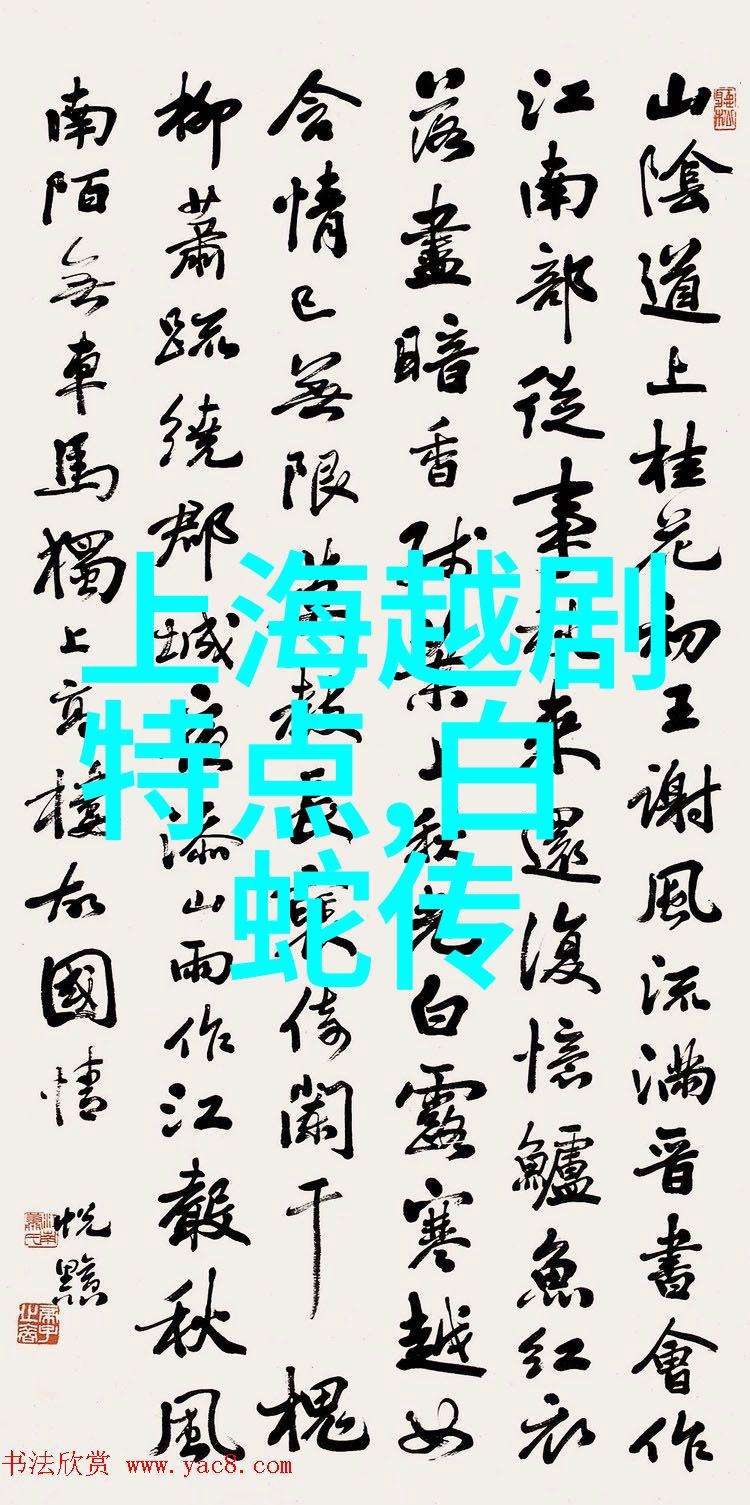 山陰道上桂花初王謝風流滿晉書會作
江南部從事秋來還復憶鱸魚紅衣
落盡暗香殘葉上秋光白露寒越女
含情已無限莫教長倚闌干槐
柳蕭疏繞郡城夜添山雨作江聲秋風
南陌無車馬獨上高樓故國情
上海越剧
特点,白
蛇传
书法欣赏 www.yac8.com